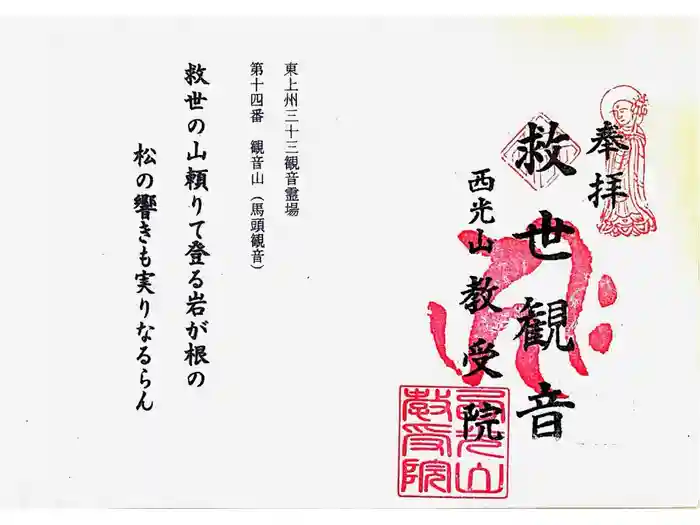 奉拝
救世観音
西光山 教受院
西光山
教受院
東上州三十三観音霊場
第十四番 観音山（馬頭観音）
救世の山頼りて登る岩が根の
松の響きも実りなるらん